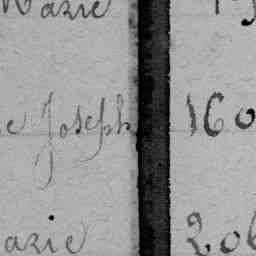 Marie
e Joseph 160
arie 206